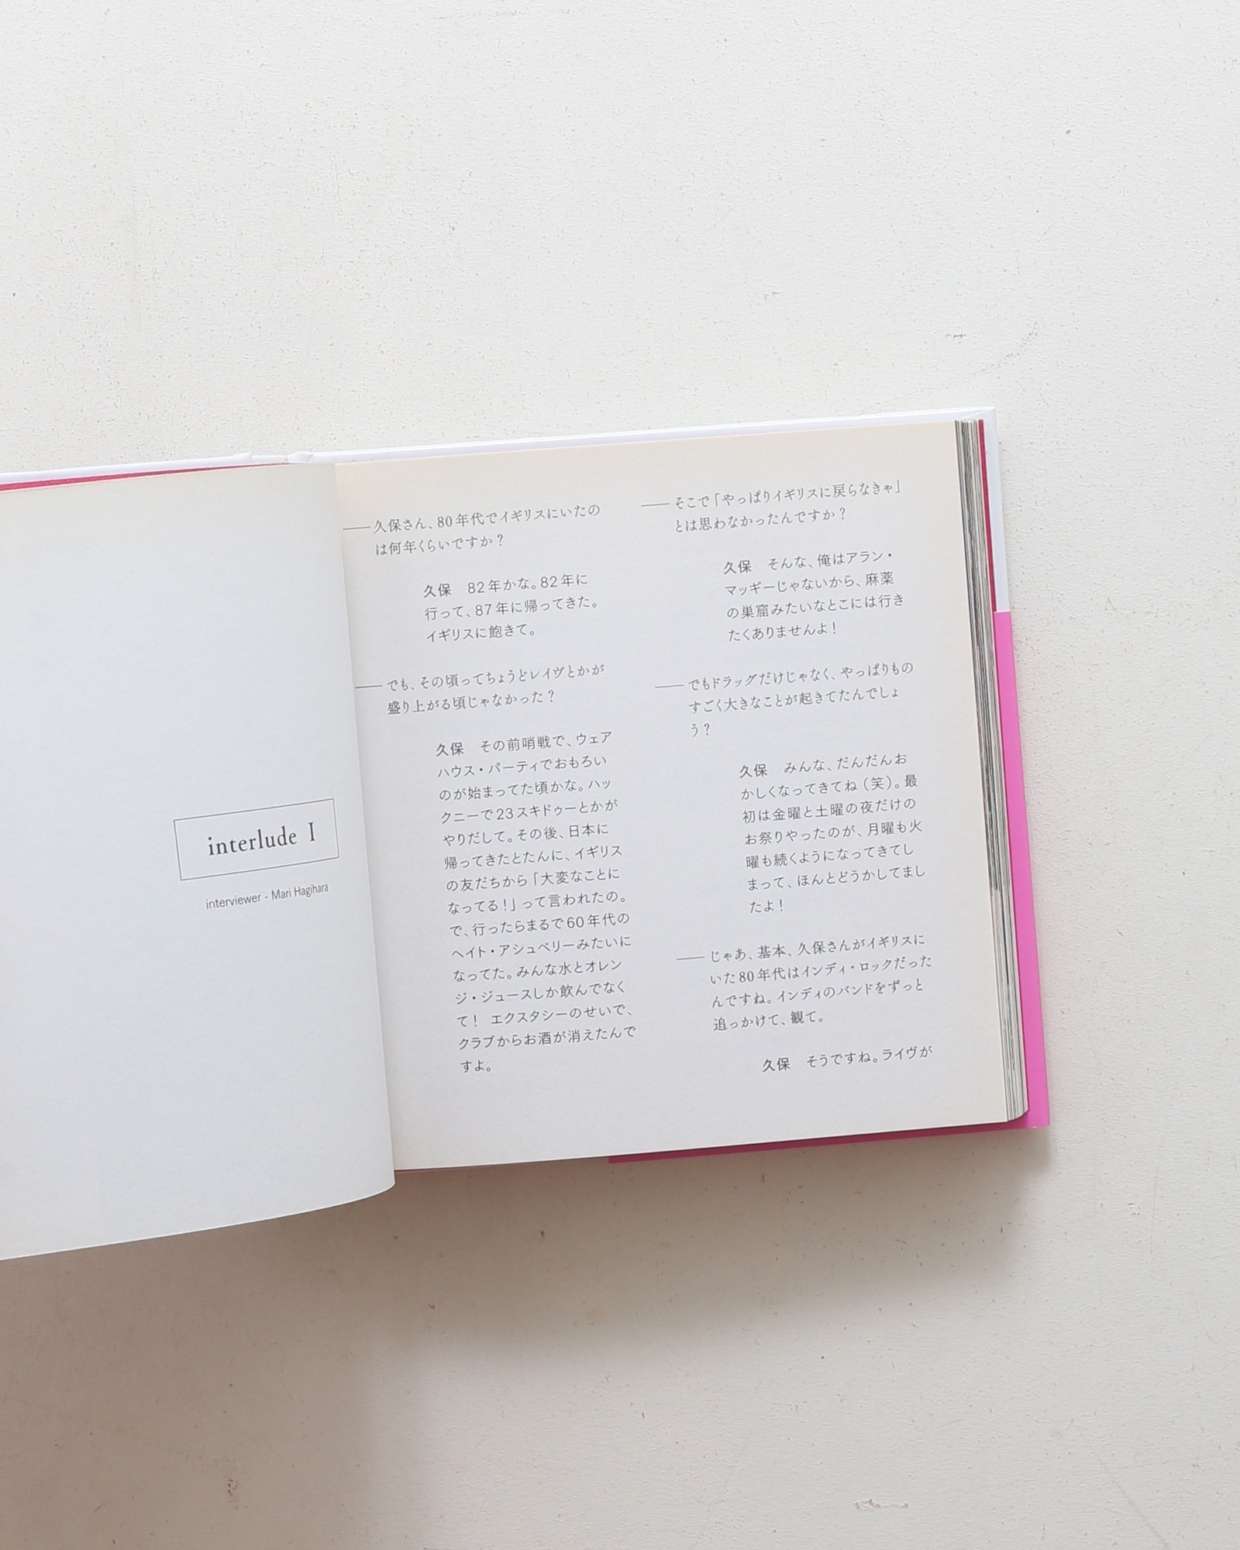 interlude I
interviewer - Mari Hagihara
――久保さん、80年代でイギリスにいたの
は何年くらいですか？
久保　82年かな。82年に
行って、87年に帰ってきた。
イギリスに飽きて。
――でも、その頃ってちょうどレイヴとかが
盛り上がる頃じゃなかった？
久保　その前哨戦で、ウェア
ハウス・パーティでおもろい
のが始まってた頃かな。ハッ
クニーで23スキドゥーとかが
やりだして。その後、日本に
帰ってきたとたんに、イギリス
の友だちから「大変なことに
なってる！」って言われたの。
で、行ったらまるで60年代の
ヘイト・アシュベリーみたいに
なってた。みんな水とオレン
ジ・ジュースしか飲んでなく
て！　エクスタシーのせいで、
クラブからお酒が消えたんで
すよ。
――そこで「やっぱりイギリスに戻らなきゃ」
とは思わなかったんですか？
久保　そんな、俺はアラン・
マッギーじゃないから、麻薬
の巣窟みたいなとこには行き
たくありませんよ！
――でもドラッグだけじゃなく、やっぱりもの
すごく大きなことが起きてたんでしょ
う？
久保　みんな、だんだんお
かしくなってきてね（笑）。最
初は金曜と土曜の夜だけの
お祭りやったのが、月曜も火
曜も続くようになってきてし
まって、ほんとどうかしてまし
たよ！
――じゃあ、基本、久保さんがイギリスに
いた80年代はインディ・ロックだった
んですね。インディのバンドをずっと
追っかけて、観て。
久保　そうですね。ライヴが